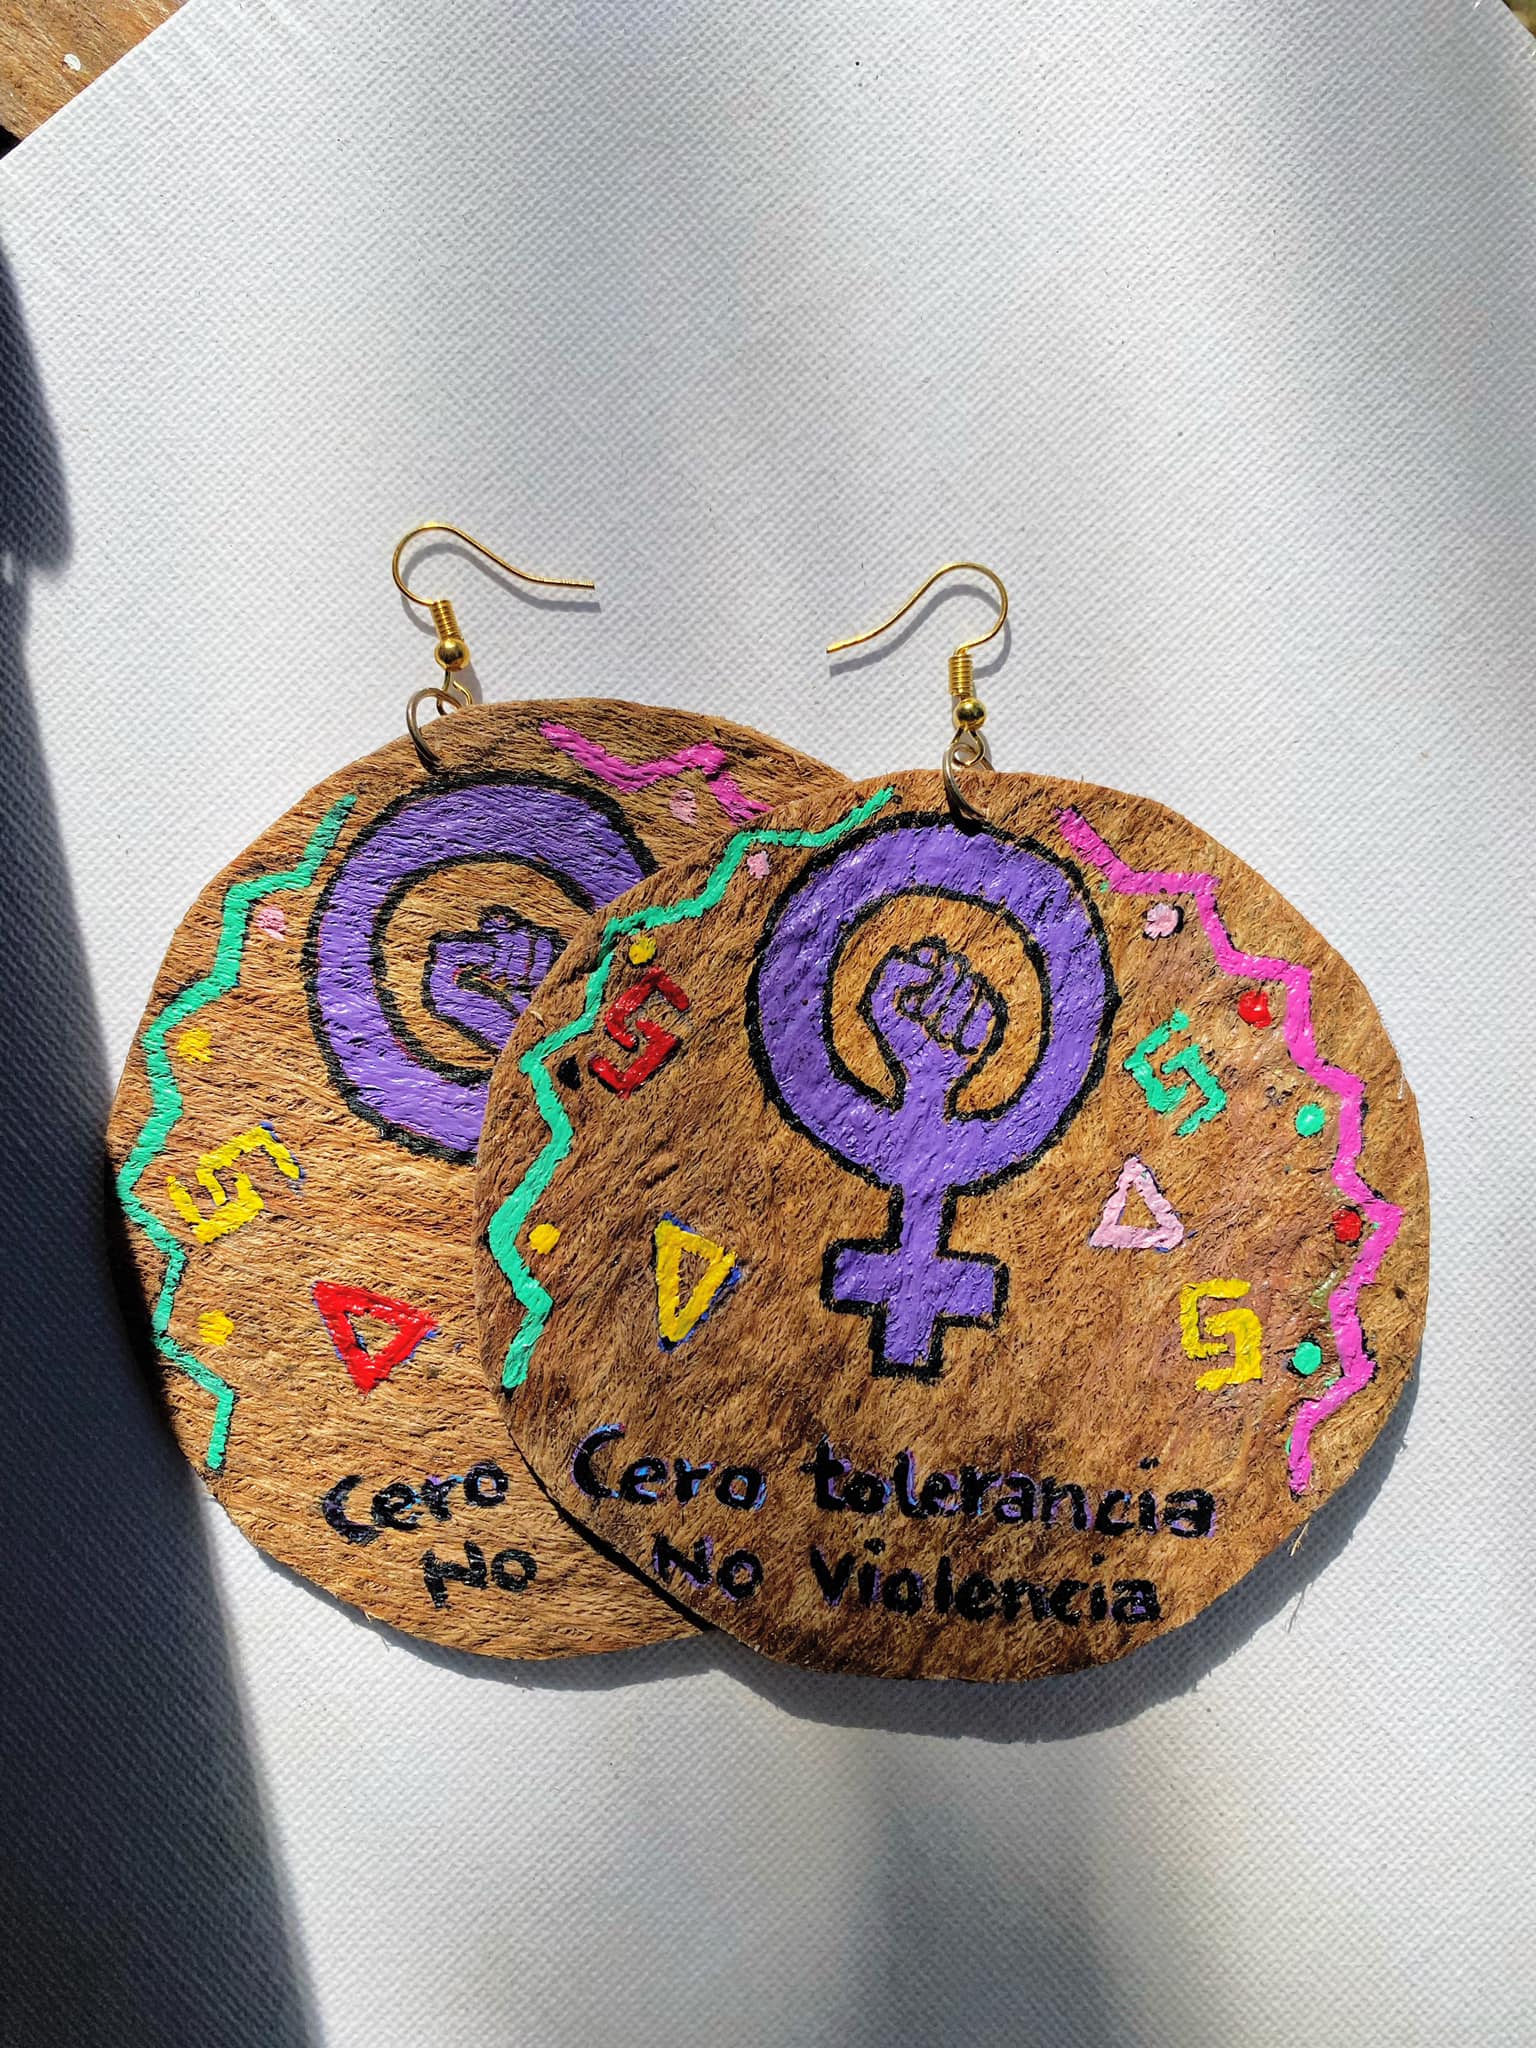 Cero
No
Cero tolerancia
No Violencia